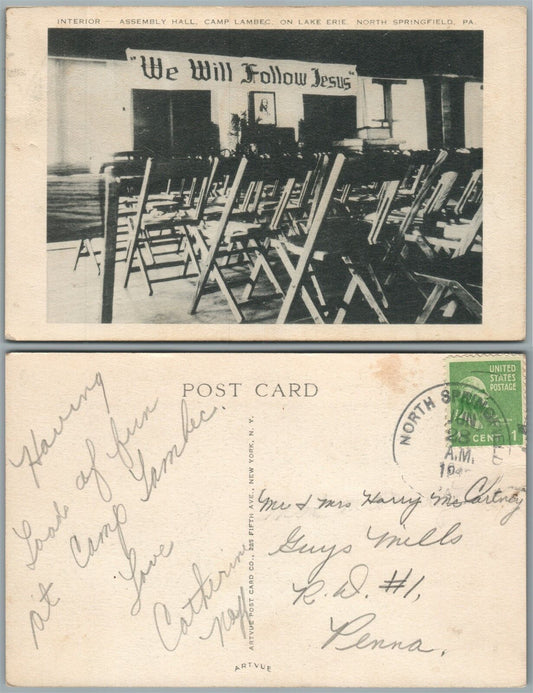 INTERIOR — ASSEMBLY HALL, CAMP LAMBEC, ON LAKE ERIE, NORTH SPRINGFIELD, PA.
"We Will Follow Jesus"
POST CARD
Having
Loads of fun
at Camp Lambec.
Love
Catherine
ARTVUE POST CARD CO., 225 FIFTH AVE., NEW YORK, N. Y.
ARTVUE
UNITED
STATES
POSTAGE
CENT 1
NORTH SPRINGFIELD
A.M.
Mr & Mrs Harry McCartney
Guys Mills
R.D. #1,
Penna.